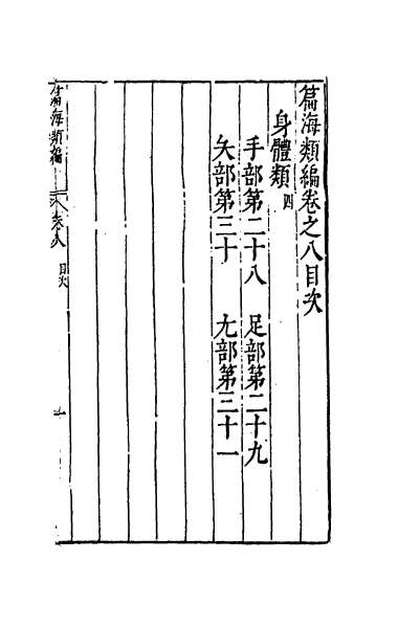 篇海類編卷之八目次
身體類四
手部第二十八 足部第二十九
矢部第三十 尢部第三十一
篇海類編 卷八 目次 一